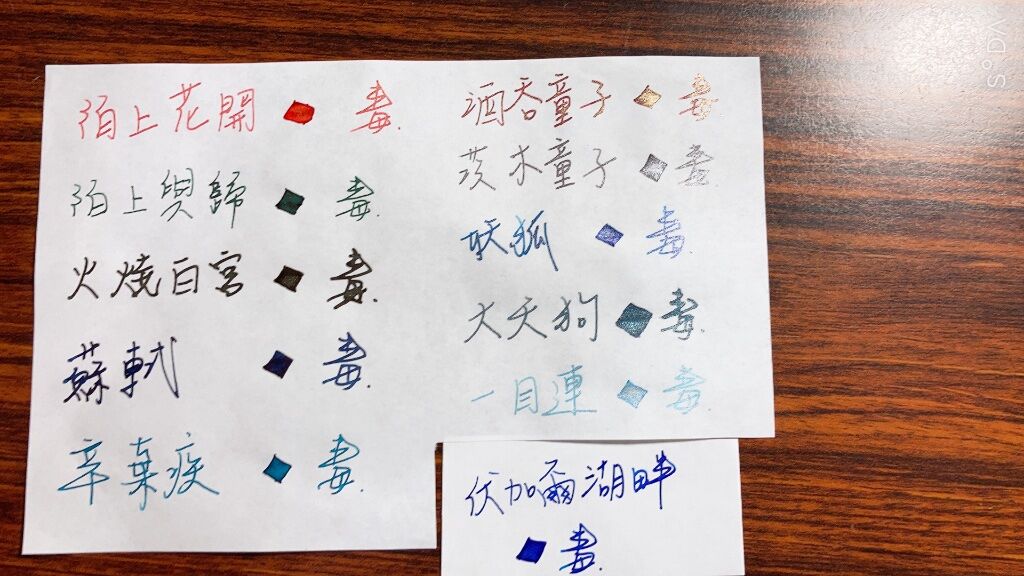 陌上花開 毒.
陌上與歸 毒.
火燒白宮 毒.
蘇軾 毒.
辛棄疾 毒.
酒吞童子 毒
茨木童子 毒
妖狐 毒
大天狗 毒.
一目連 毒
伏加爾湖畔
毒.